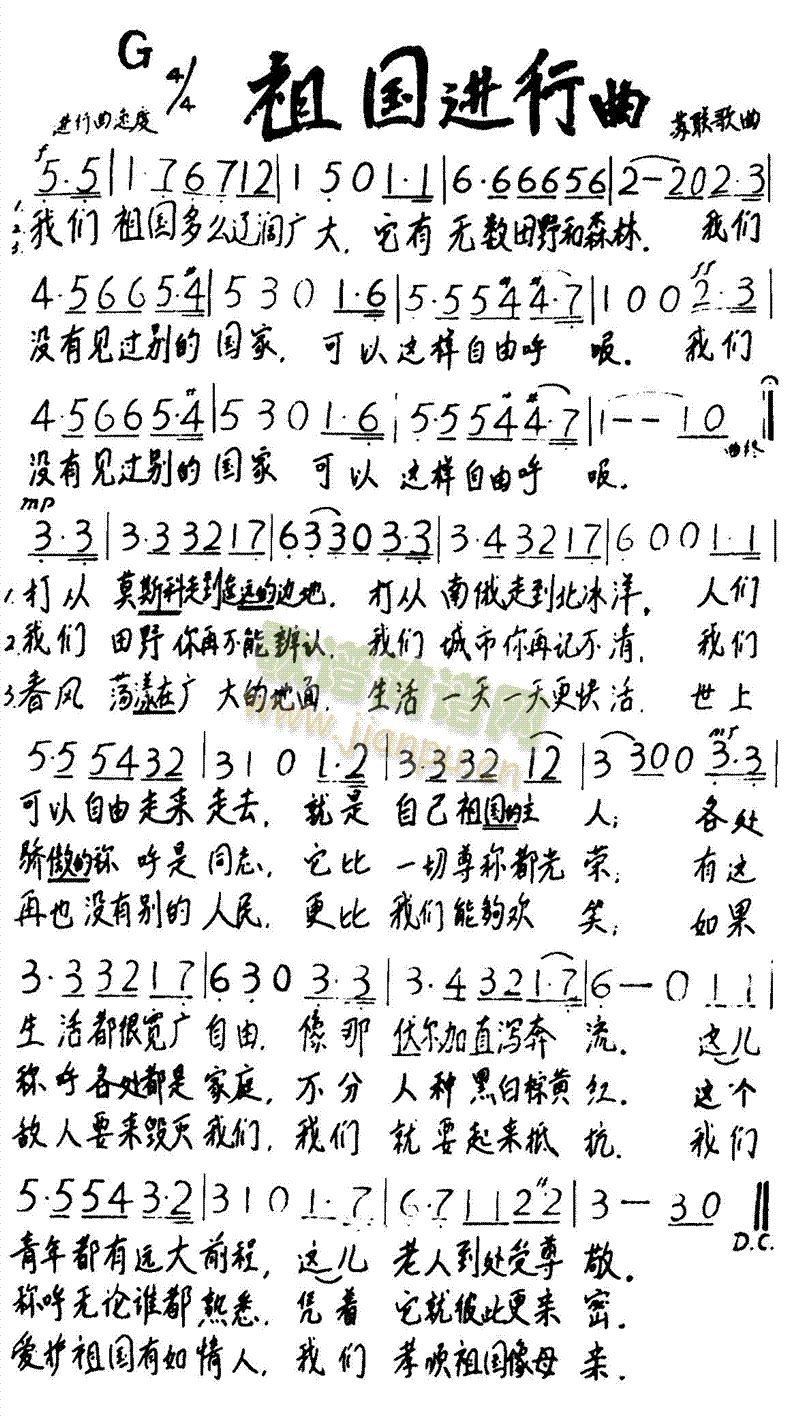 G 4/4 祖国进行曲
进行曲速度 苏联歌曲
f
5·5|1·76712|1501·1|6·66656|2-202·3|
1.
2. 我们祖国多么辽阔广大,它有无数田野和森林. 我们
3.
ff
4·5665·#4|5301·6|5·55#4#4·7|1002·3|
没有见过别的国家,可以这样自由呼吸. 我们
4·5665·#4|5301·6|5·55#4#4·7|1--10
曲终
没有见过别的国家 可以这样自由呼吸.
mp
3·3|3·33217|63303·3|3·43217|6001·1|
1.打从莫斯科走到遥远的边地,打从南俄走到北冰洋, 人们
2.我们田野你再不能辨认,我们城市你再记不清, 我们
3.春风荡漾在广大的地面,生活一天一天更快活, 世上
歌谱简谱网
www.jianpu.cn
mf
5·55432|3101·2|3·33212|33003·3|
可以自由走来走去,就是自己祖国的主人; 各处
骄傲的称呼是同志,它比一切尊称都光荣; 有这
再也没有别的人民,更比我们能够欢笑; 如果
3·33217|6303·3|3·4321·7|6-011|
生活都很宽广自由.像那伏尔加直泻奔流. 这儿
称呼各处都是家庭,不分人种黑白棕黄红. 这个
敌人要来毁灭我们,我们就要起来抵抗. 我们
5·5543·2|3101·7|6·711#22|3-30
D.C.
青年都有远大前程,这儿老人到处受尊敬.
称呼无论谁都熟悉,凭着它就彼此更亲密.
爱护祖国有如情人,我们孝顺祖国像母亲.